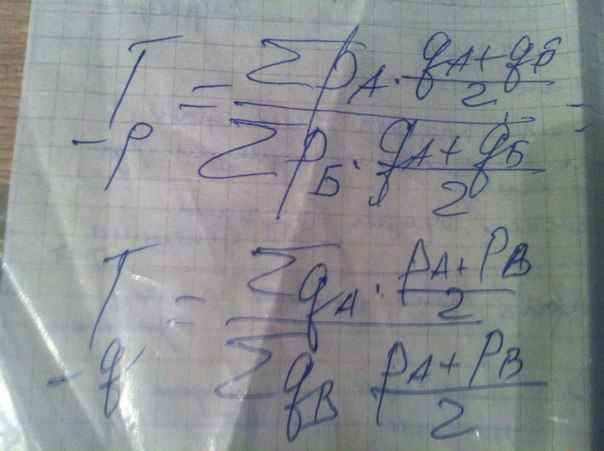 T-p = (Σp_A · (q_A + q_Б)/2) / (Σp_Б · (q_A + q_Б)/2) =
T-q = (Σq_A · (p_A + p_B)/2) / (Σq_B (p_A + p_B)/2)